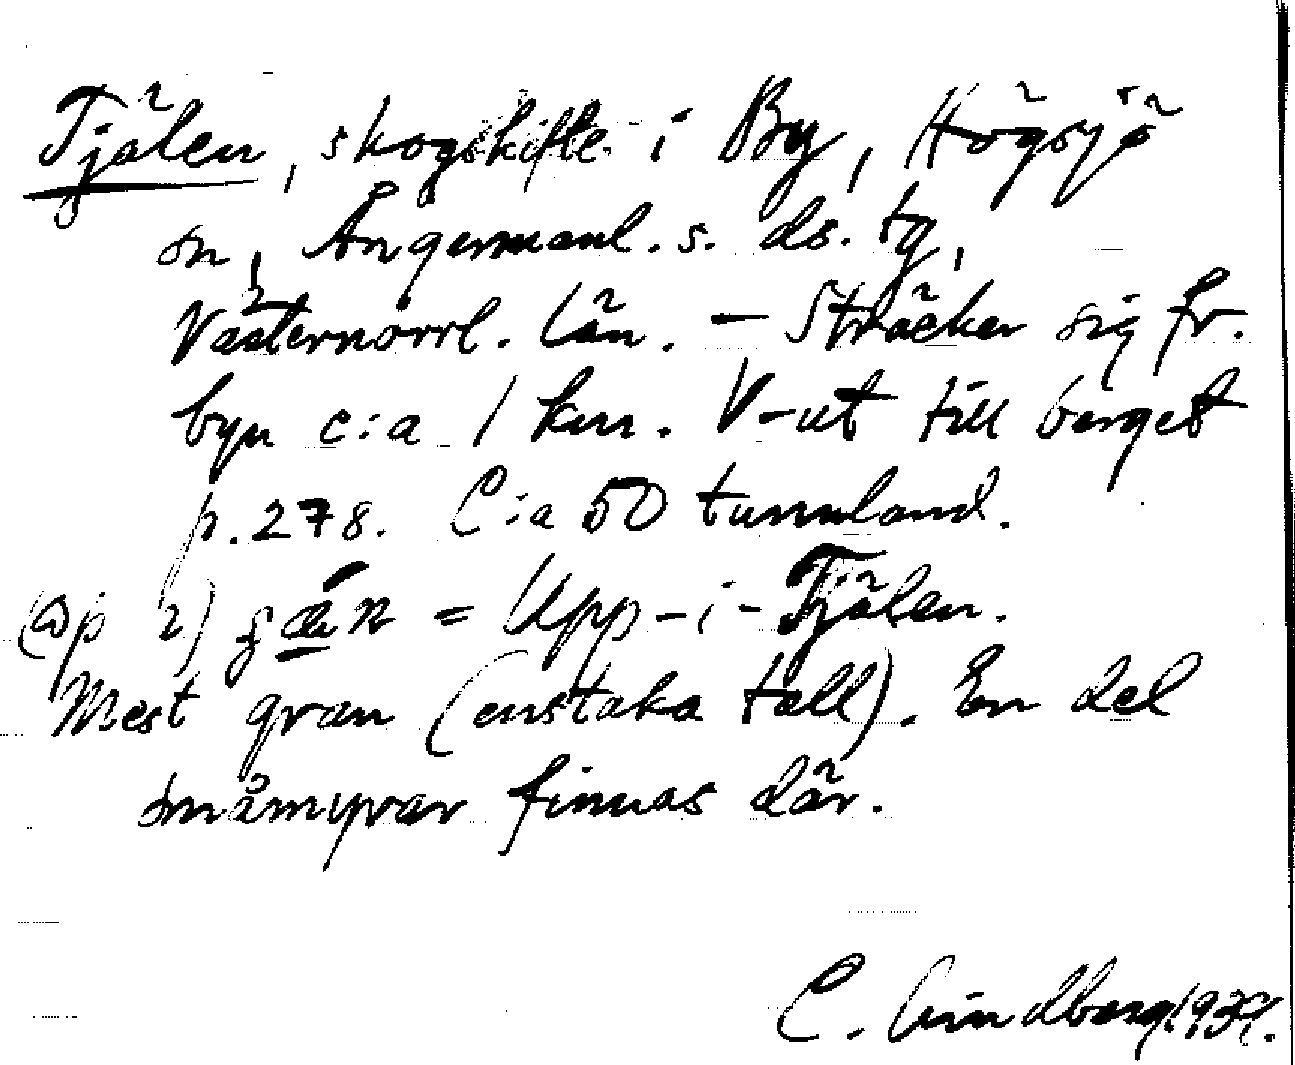 Tjälen, skogskifte i By, Högsjö
sn, Ångermanl. s. ds. tg,
Västernorrl. län. – Sträcker sig fr.
byn c:a 1 km. V-ut till berget
p. 278. C:a 50 tunnland.
= Upp-i-Tjälen.
Mest gran (enstaka tall). En del
småmyrar finnas där.
C. Lindberg 1939.